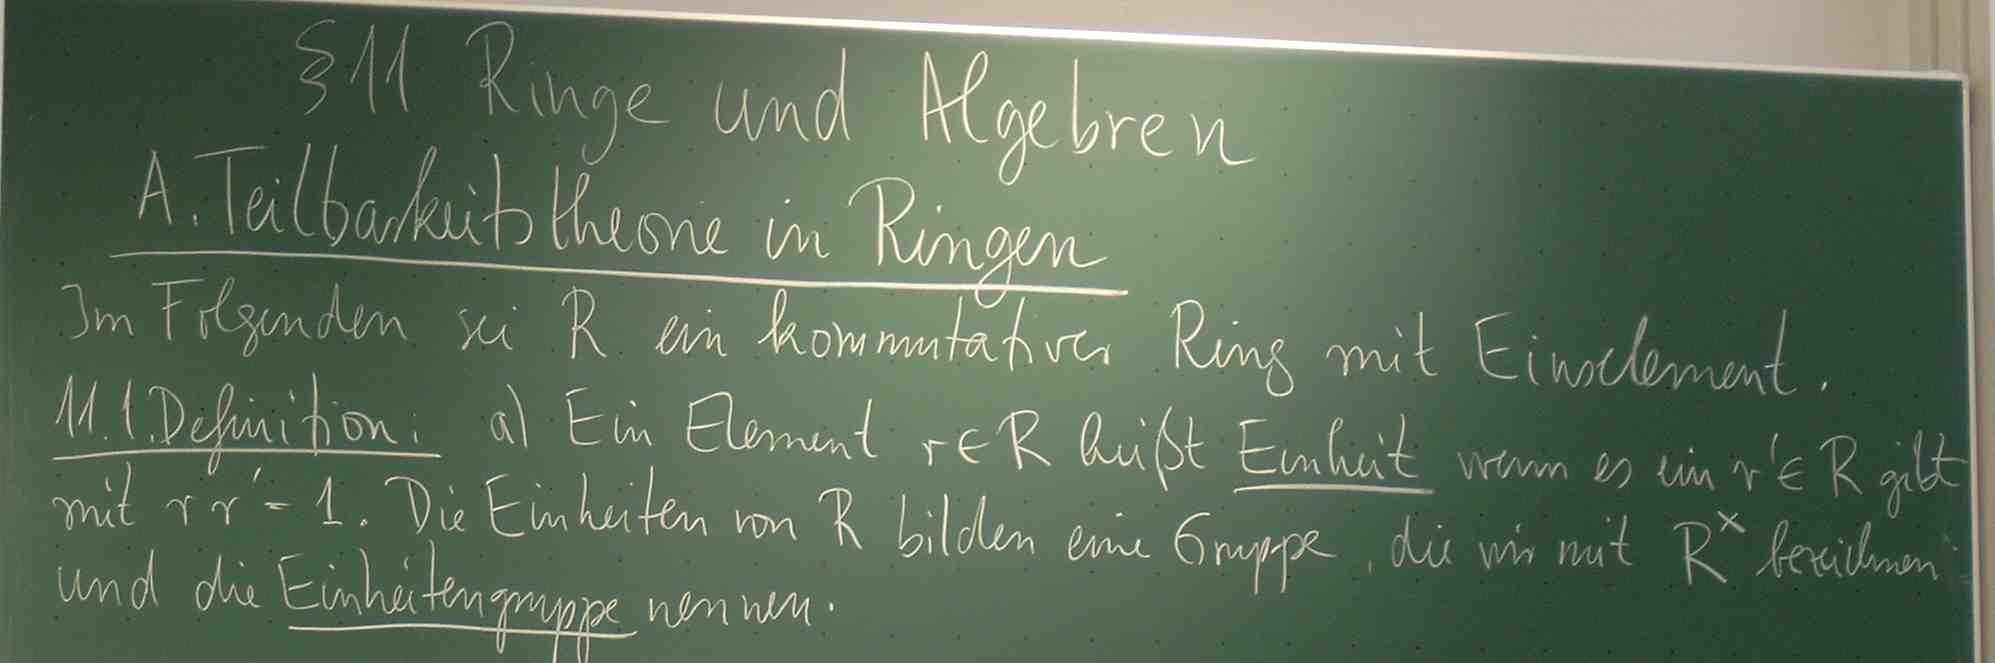 §11 Ringe und Algebren
A. Teilbarkeitstheorie in Ringen
Im Folgenden sei R ein kommutativer Ring mit Einselement.
11.1. Definition: a) Ein Element r∈R heißt Einheit wenn es ein r'∈R gibt
mit rr' = 1. Die Einheiten von R bilden eine Gruppe, die wir mit R^× bezeichnen
und die Einheitengruppe nennen.